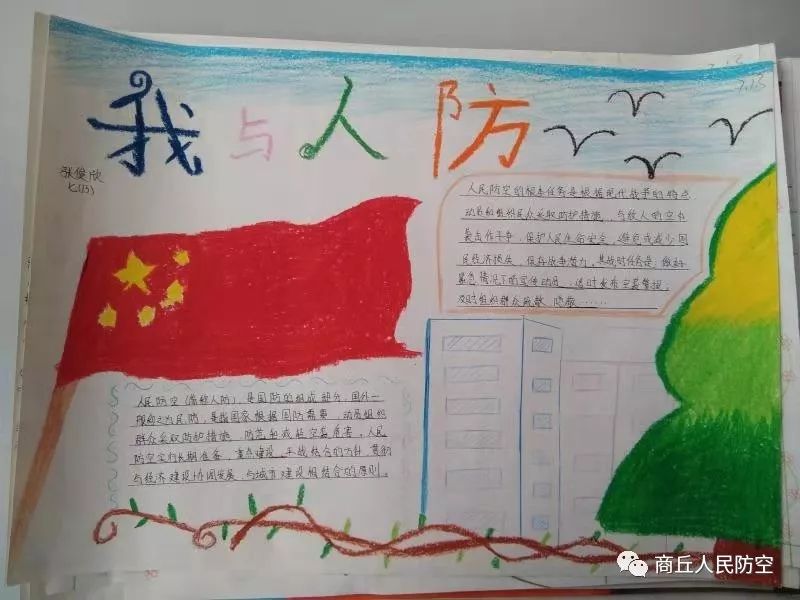 我与人防
张俊欣
七(13)
人民防空的根本任务是根据现代战争的特点
动员和组织民众采取防护措施,与敌人的空中
袭击作斗争,保护人民生命安全,避免或减少国
民经济损失,保存战争潜力。其战时任务是:做好
紧急情况下的宣传动员,适时发布空袭警报,
及时组织群众疏散、隐蔽……
人民防空(简称人防),是国防的组成部分,国外一
般称之为民防,是指国家根据国防需要,动员组织
群众采取防护措施,防范和减轻空袭危害。人民
防空实行长期准备、重点建设、平战结合的方针,贯彻
与经济建设协调发展、与城市建设相结合的原则。
商丘人民防空